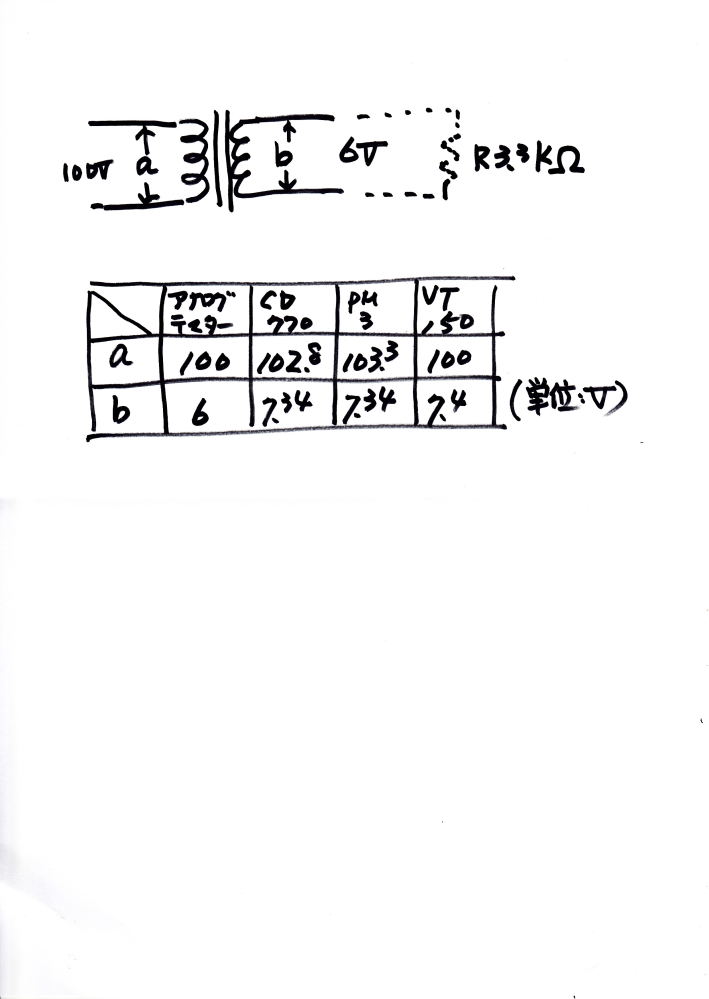 100V a b 6V R3.3KΩ
アナログテスター CD770 PM3 VT150
a 100 102.8 103.3 100
b 6 7.34 7.34 7.4 (単位:V)